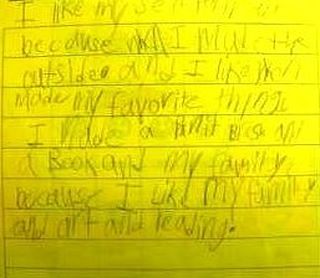 I like my
because I
outside and I like
made my favorite things
I made a and
a Book and my family,
because I like my family
and art and reading.